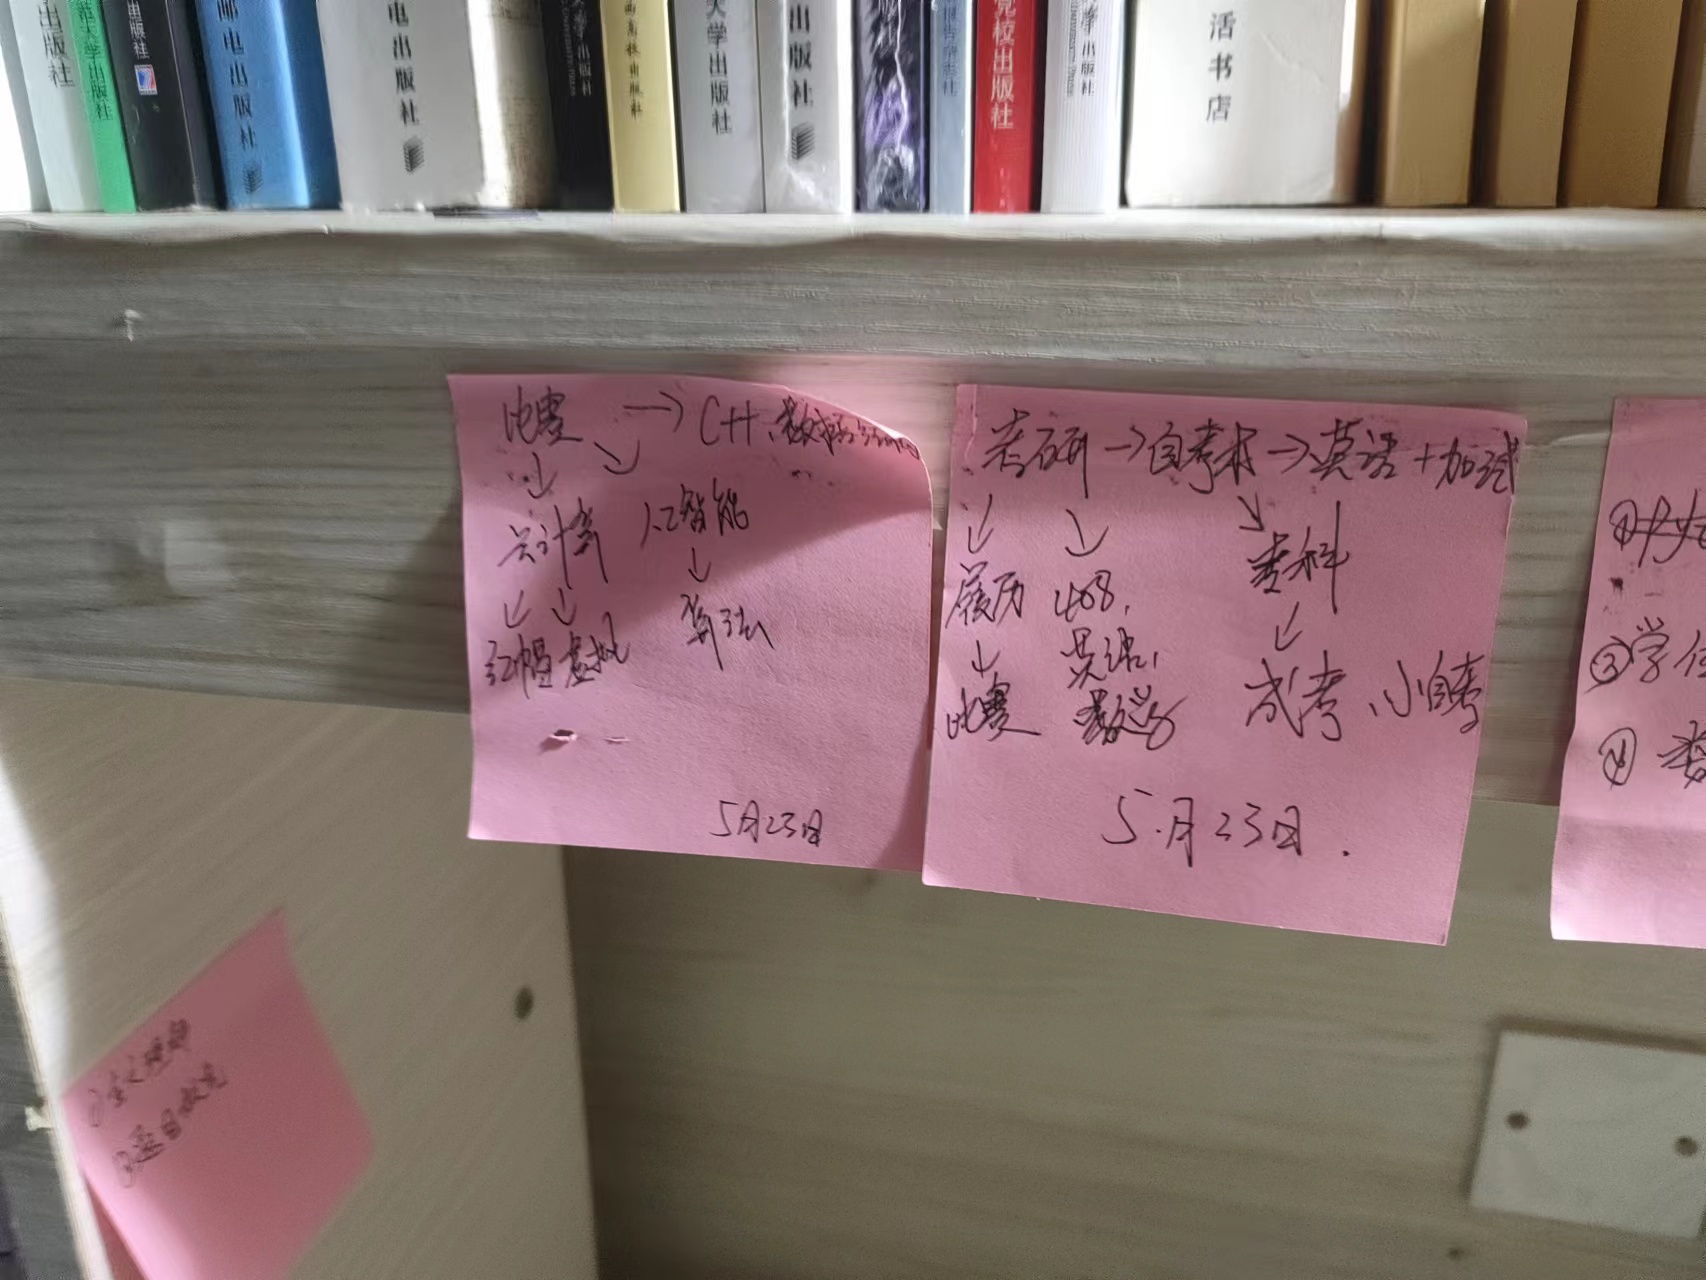 出版社
范大学出版社
出版社
邮电出版社
电出版社
大学出版社
高教出版社
大学出版社
出版社
党校出版社
大学出版社
活书店
比赛 → C++、数据结构
↓ ↘
云计算 人工智能
↓ ↓ ↓
红帽 虚拟 算法
5月23日
考研 → 自考本 → 英语 + 加试
↓ ↓ ↘
履历 408、 专科
↓ 英语、 ↓
比赛 数学 成考、小自考
5.月23日.
①
③学位
④